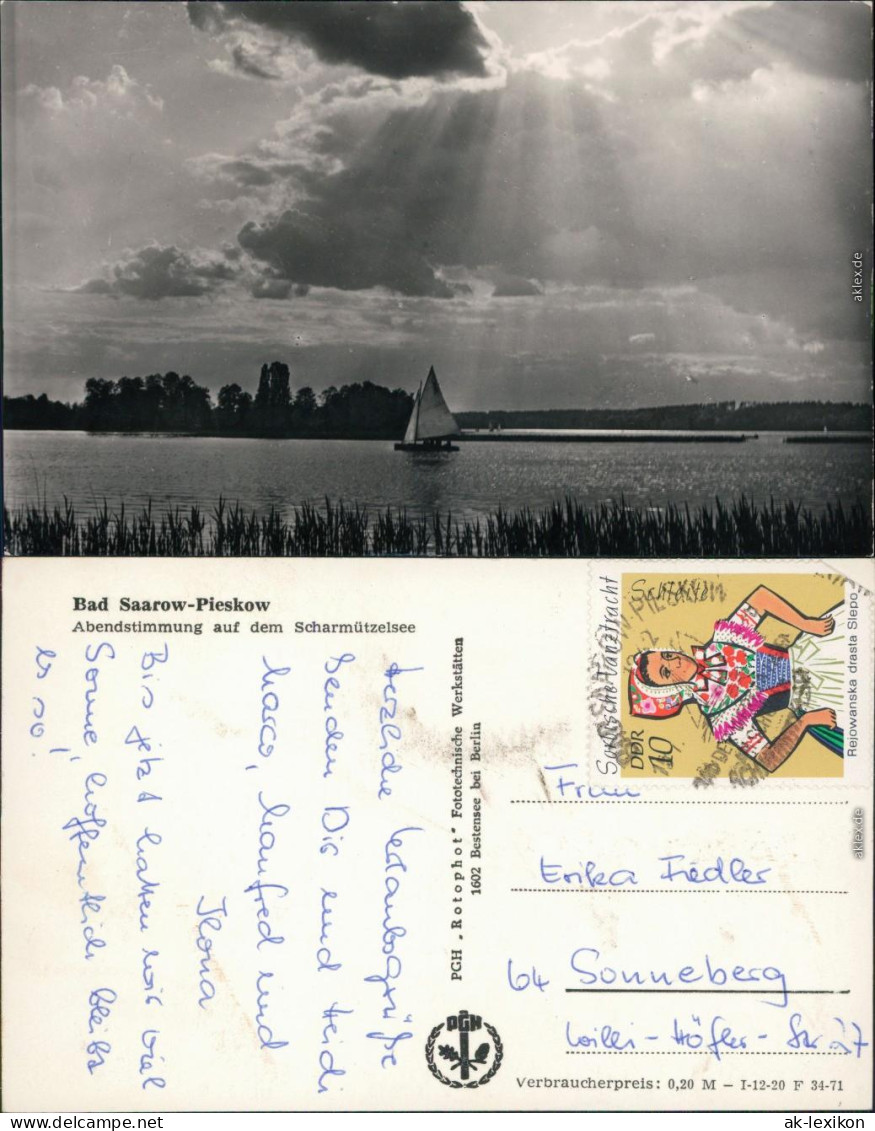 aklex.de
Bad Saarow-Pieskow
Abendstimmung auf dem Scharmützelsee
Herzliche Urlaubsgrüße
senden Dir und Heidi
Marco, Manfred und
Ilona
Bis jetzt hatten wir viel
Sonne, hoffentlich bleibt
es so!
PGH „Rotophot" Fototechnische Werkstätten
1602 Bestensee bei Berlin
PGH
Sorbische Tanztracht
Schleife
DDR
10
Rejowanska drasta Slepo
aklex.de
Frau
Erika Fiedler
64 Sonneberg
Willi-Höfler-Str.
Verbraucherpreis: 0,20 M – I-12-20 F 34-71
www.delcampe.net
ak-lexikon